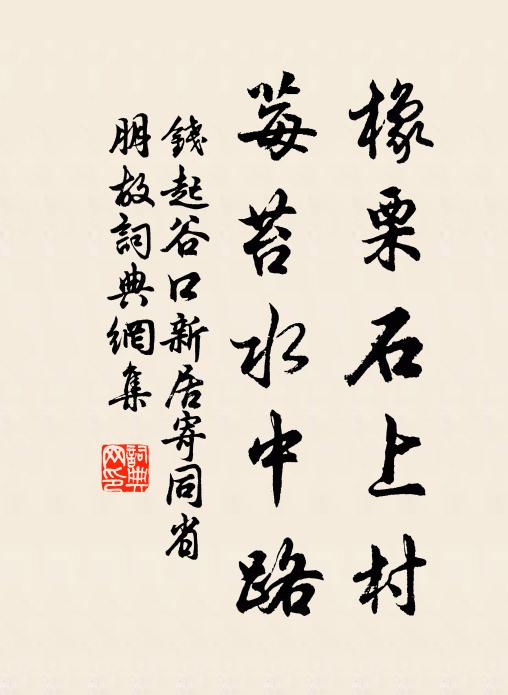 橡栗石上村
莓苔水中路
錢起谷口新居寄同省
朋故詞典網集
詞典网印